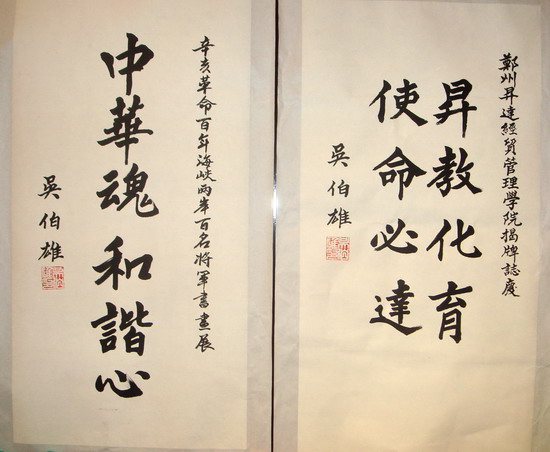 鄭州昇達經貿管理學院揭牌誌慶
昇教化育
使命必達
吳伯雄
辛亥革命百年海峽兩岸百名將軍書畫展
中華魂和諧心
吳伯雄